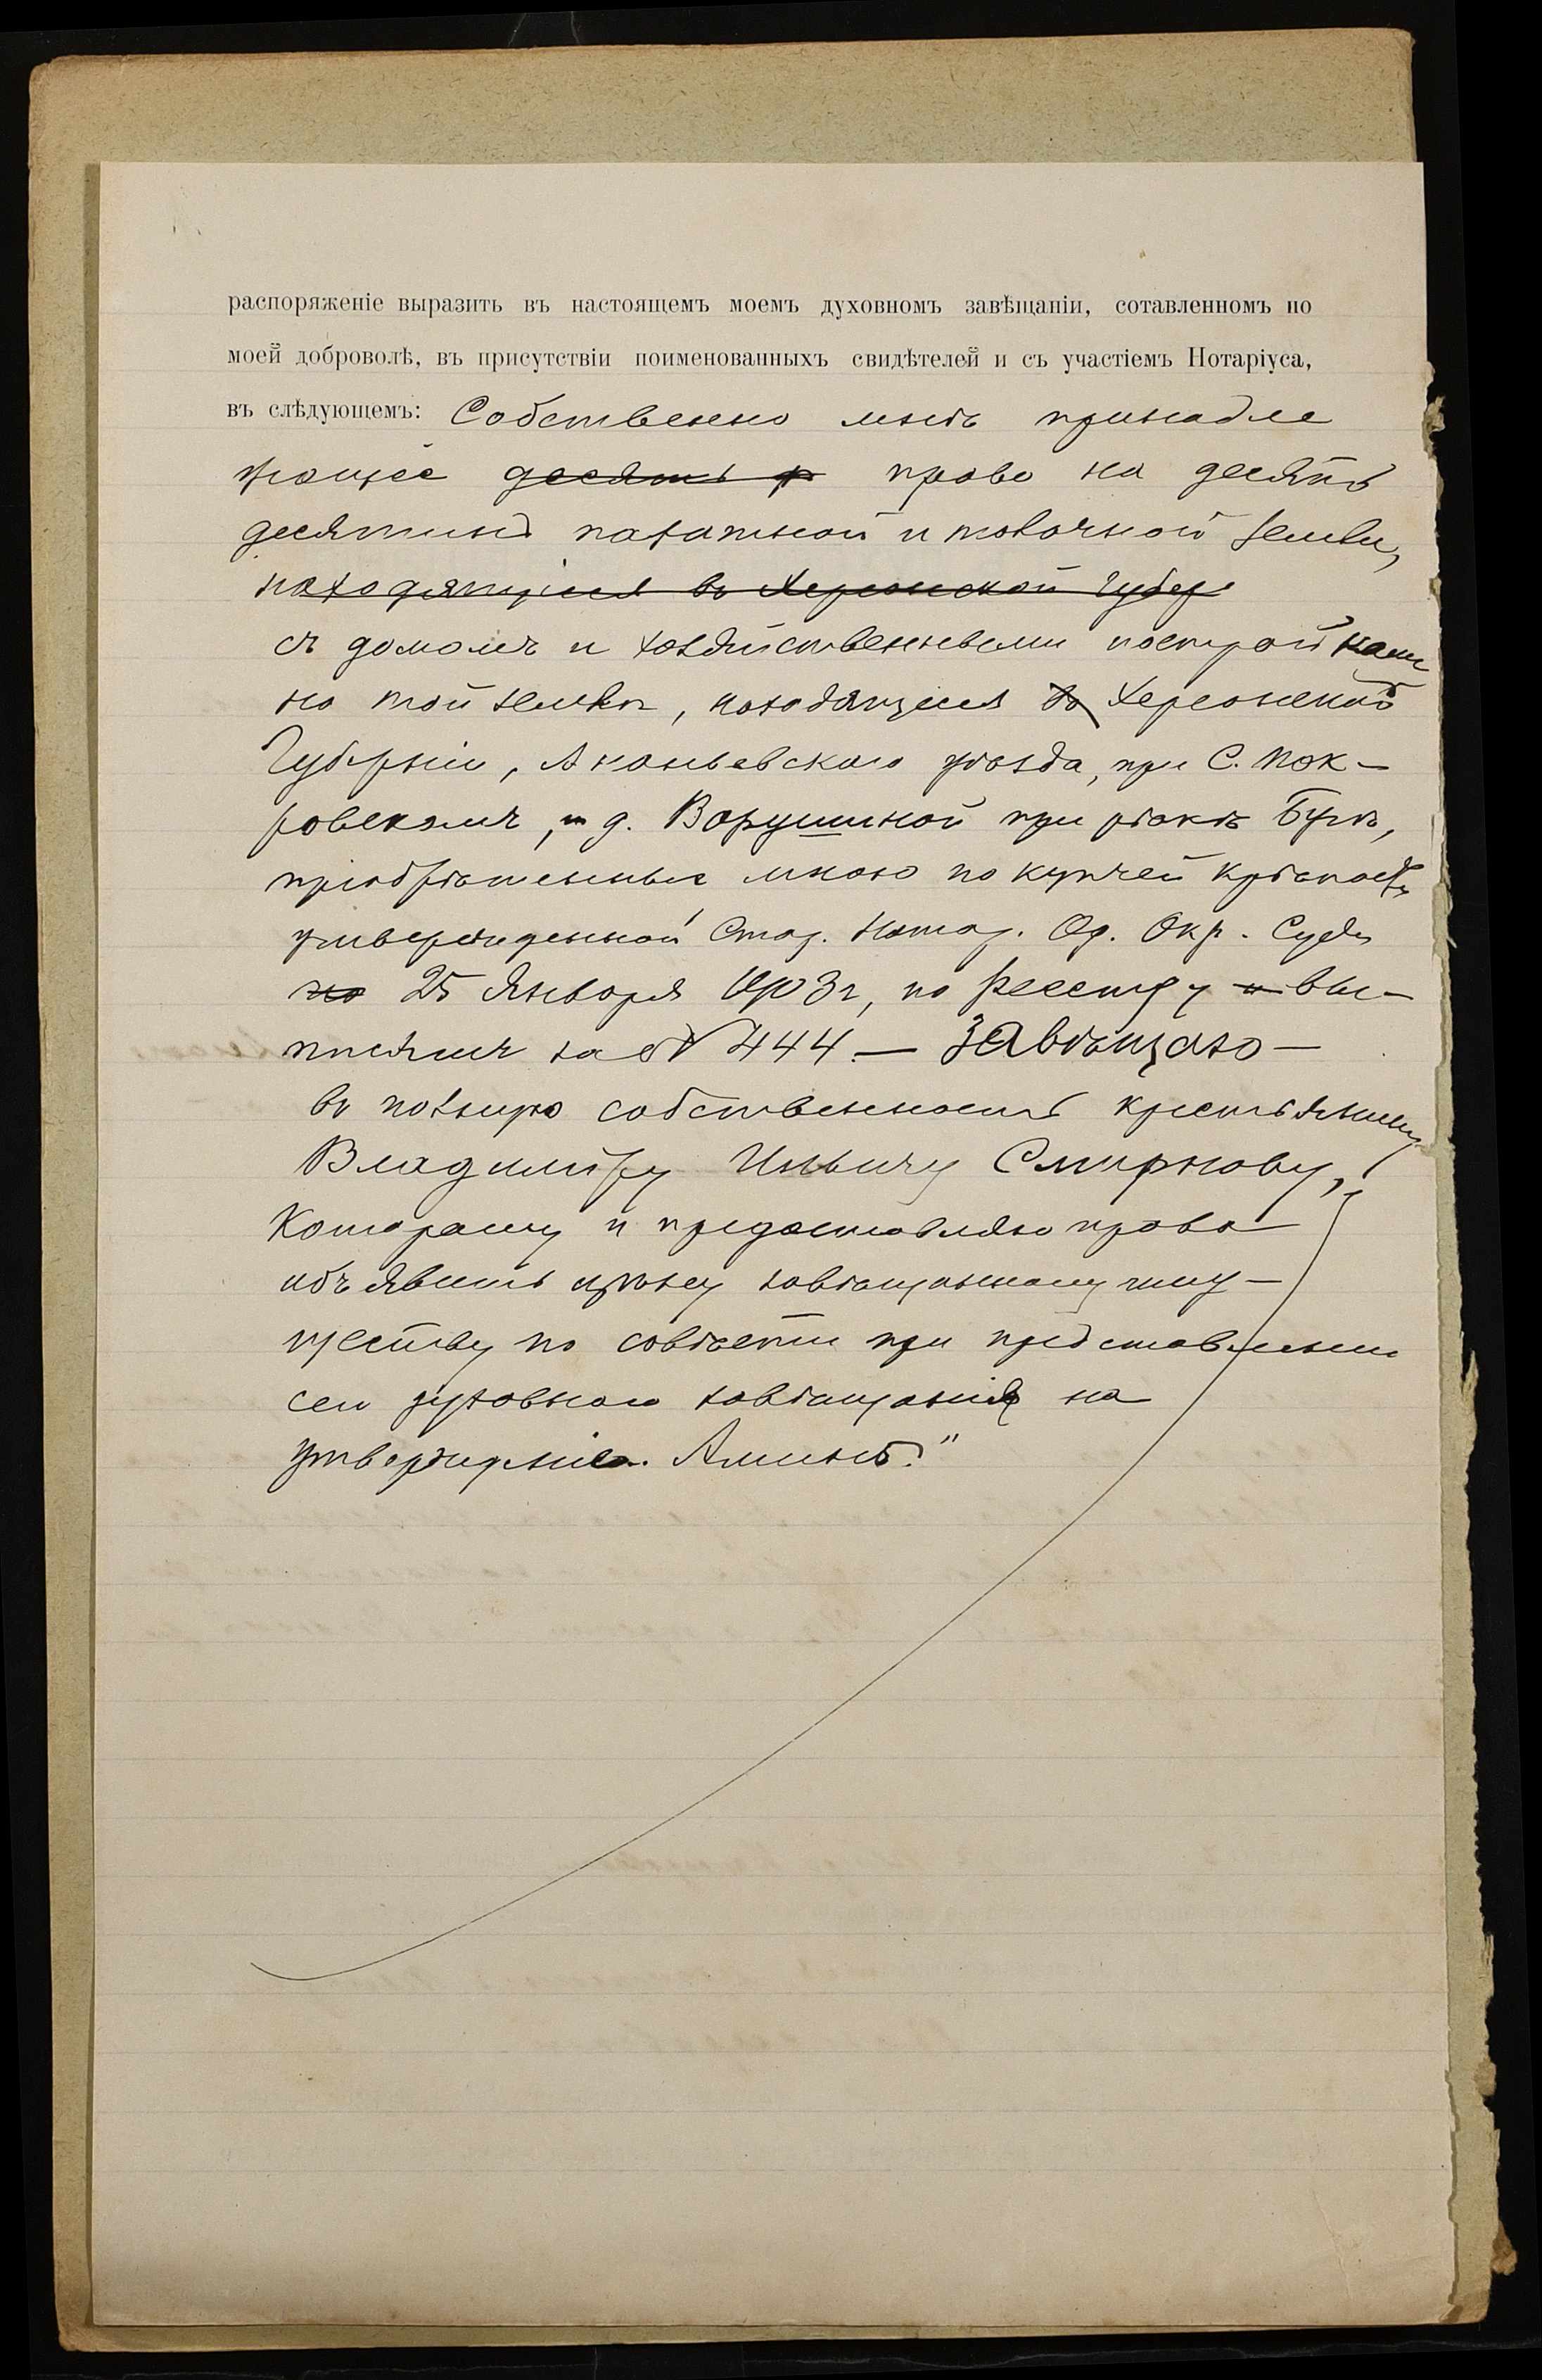 распоряженіе выразить въ настоящемъ моемъ духовномъ завѣщаніи, сотавленномъ по
моей доброволѣ, въ присутствіи поименованныхъ свидѣтелей и съ участіемъ Нотаріуса,
въ слѣдующемъ: Собственно мнѣ принадле
жащее десять р право на десять
десятинъ пахатной и толочной земли,
находящіеся въ Херсонской Губер
съ домомъ и хозяйственными постройками
на той землѣ, находящеися въ Херсонской
Губерніи, Ананьевскаго уѣзда, при С. Пок-
ровскомъ, и д. Ворушиной при рѣкѣ Бугѣ,
пріобрѣтенные мною по купчей крѣпости
утвержденной Стар. Нотар. Од. Окр. Суда
25 Января 1903 г, по Реестру и вы-
писямъ за № 444. — Завѣщаю —
въ полную собственность крестьянину
Владиміру Ильичу Смирнову,
Которому и предоставляю право
объявить цѣну завѣщанному иму-
ществу по совѣсти при представленіи
сего духовнаго завѣщанія на
утвержденіе. Аминь."